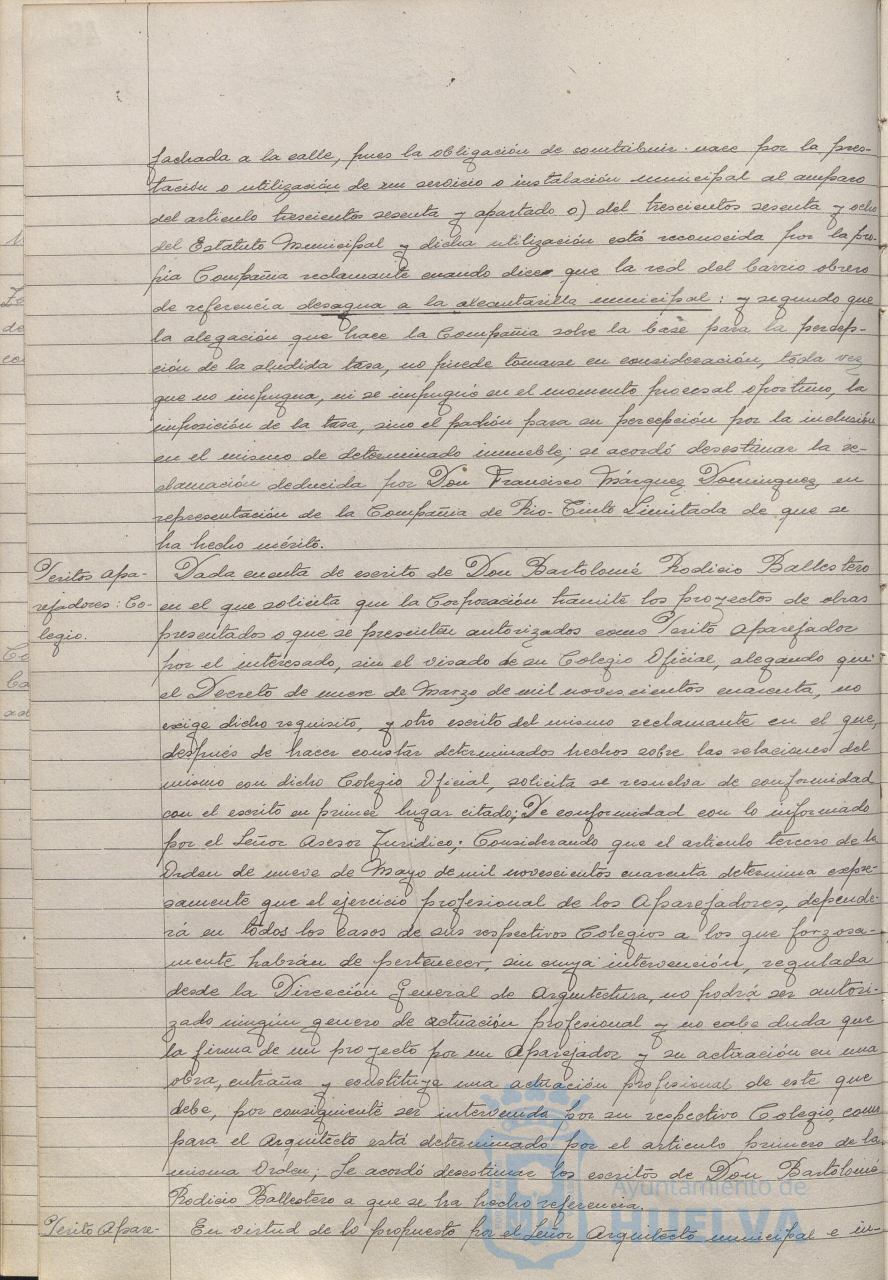 fachada a la calle, pues la obligación de contribuir nace por la pres-
tación o utilización de un servicio o instalación municipal al amparo
del artículo trescientos sesenta y apartado o) del trescientos sesenta y ocho
del Estatuto Municipal y dicha utilización está reconocida por la pro-
pia Compañia reclamante cuando dice que la red del barrio obrero
de referencia desagua a la alcantarilla municipal: y segundo que
la alegación que hace la Compañia sobre la base para la percep-
ción de la aludida tasa, no puede tomarse en consideración, toda vez
que no impugna, ni se impugnó en el momento procesal oportuno, la
imposición de la tasa, sino el padrón para su percepción por la inclusión
en el mismo de determinado inmueble; se acordó desestimar la re-
clamación deducida por Don Francisco Márquez Dominguez en
representación de la Compañia de Rio-Tinto Limitada de que se
ha hecho mérito.
Peritos Apa-
rejadores: Co-
legio.
Dada cuenta de escrito de Don Bartolomé Rodicio Ballestero
en el que solicita que la Corporación tramite los proyectos de obras
presentados o que se presentan autorizados como Perito Aparejador
por el interesado, sin el visado de su Colegio Oficial, alegando que
el Decreto de nueve de Marzo de mil novescientos cuarenta, no
exige dicho requisito, y otro escrito del mismo reclamante en el que,
después de hacer constar determinados hechos sobre las relaciones del
mismo con dicho Colegio Oficial, solicita se resuelva de conformidad
con el escrito en primer lugar citado; De conformidad con lo informado
por el Señor Asesor Jurídico; Considerando que el artículo tercero de la
Orden de nueve de Mayo de mil novescientos cuarenta determina expre-
samente que el ejercicio profesional de los Aparejadores, depende-
rá en todos los casos de sus respectivos Colegios a los que forzosa-
mente habrán de pertenecer, sin cuya intervención, regulada
desde la Dirección General de Arquitectura, no podrá ser autori-
zado ningún genero de actuación profesional y no cabe duda que
la firma de un proyecto por un Aparejador y su actuación en una
obra, entraña y constituye una actuación profesional de este que
debe, por consiguiente ser intervenida por su respectivo Colegio, como
para el Arquitecto está determinado por el articulo primero de la
misma Orden; Se acordó desestimar los escritos de Don Bartolomé
Rodicio Ballestero a que se ha hecho referencia.
Perito Apare-
En virtud de lo propuesto por el Señor Arquitecto municipal e in-
Ayuntamiento de
HUELVA